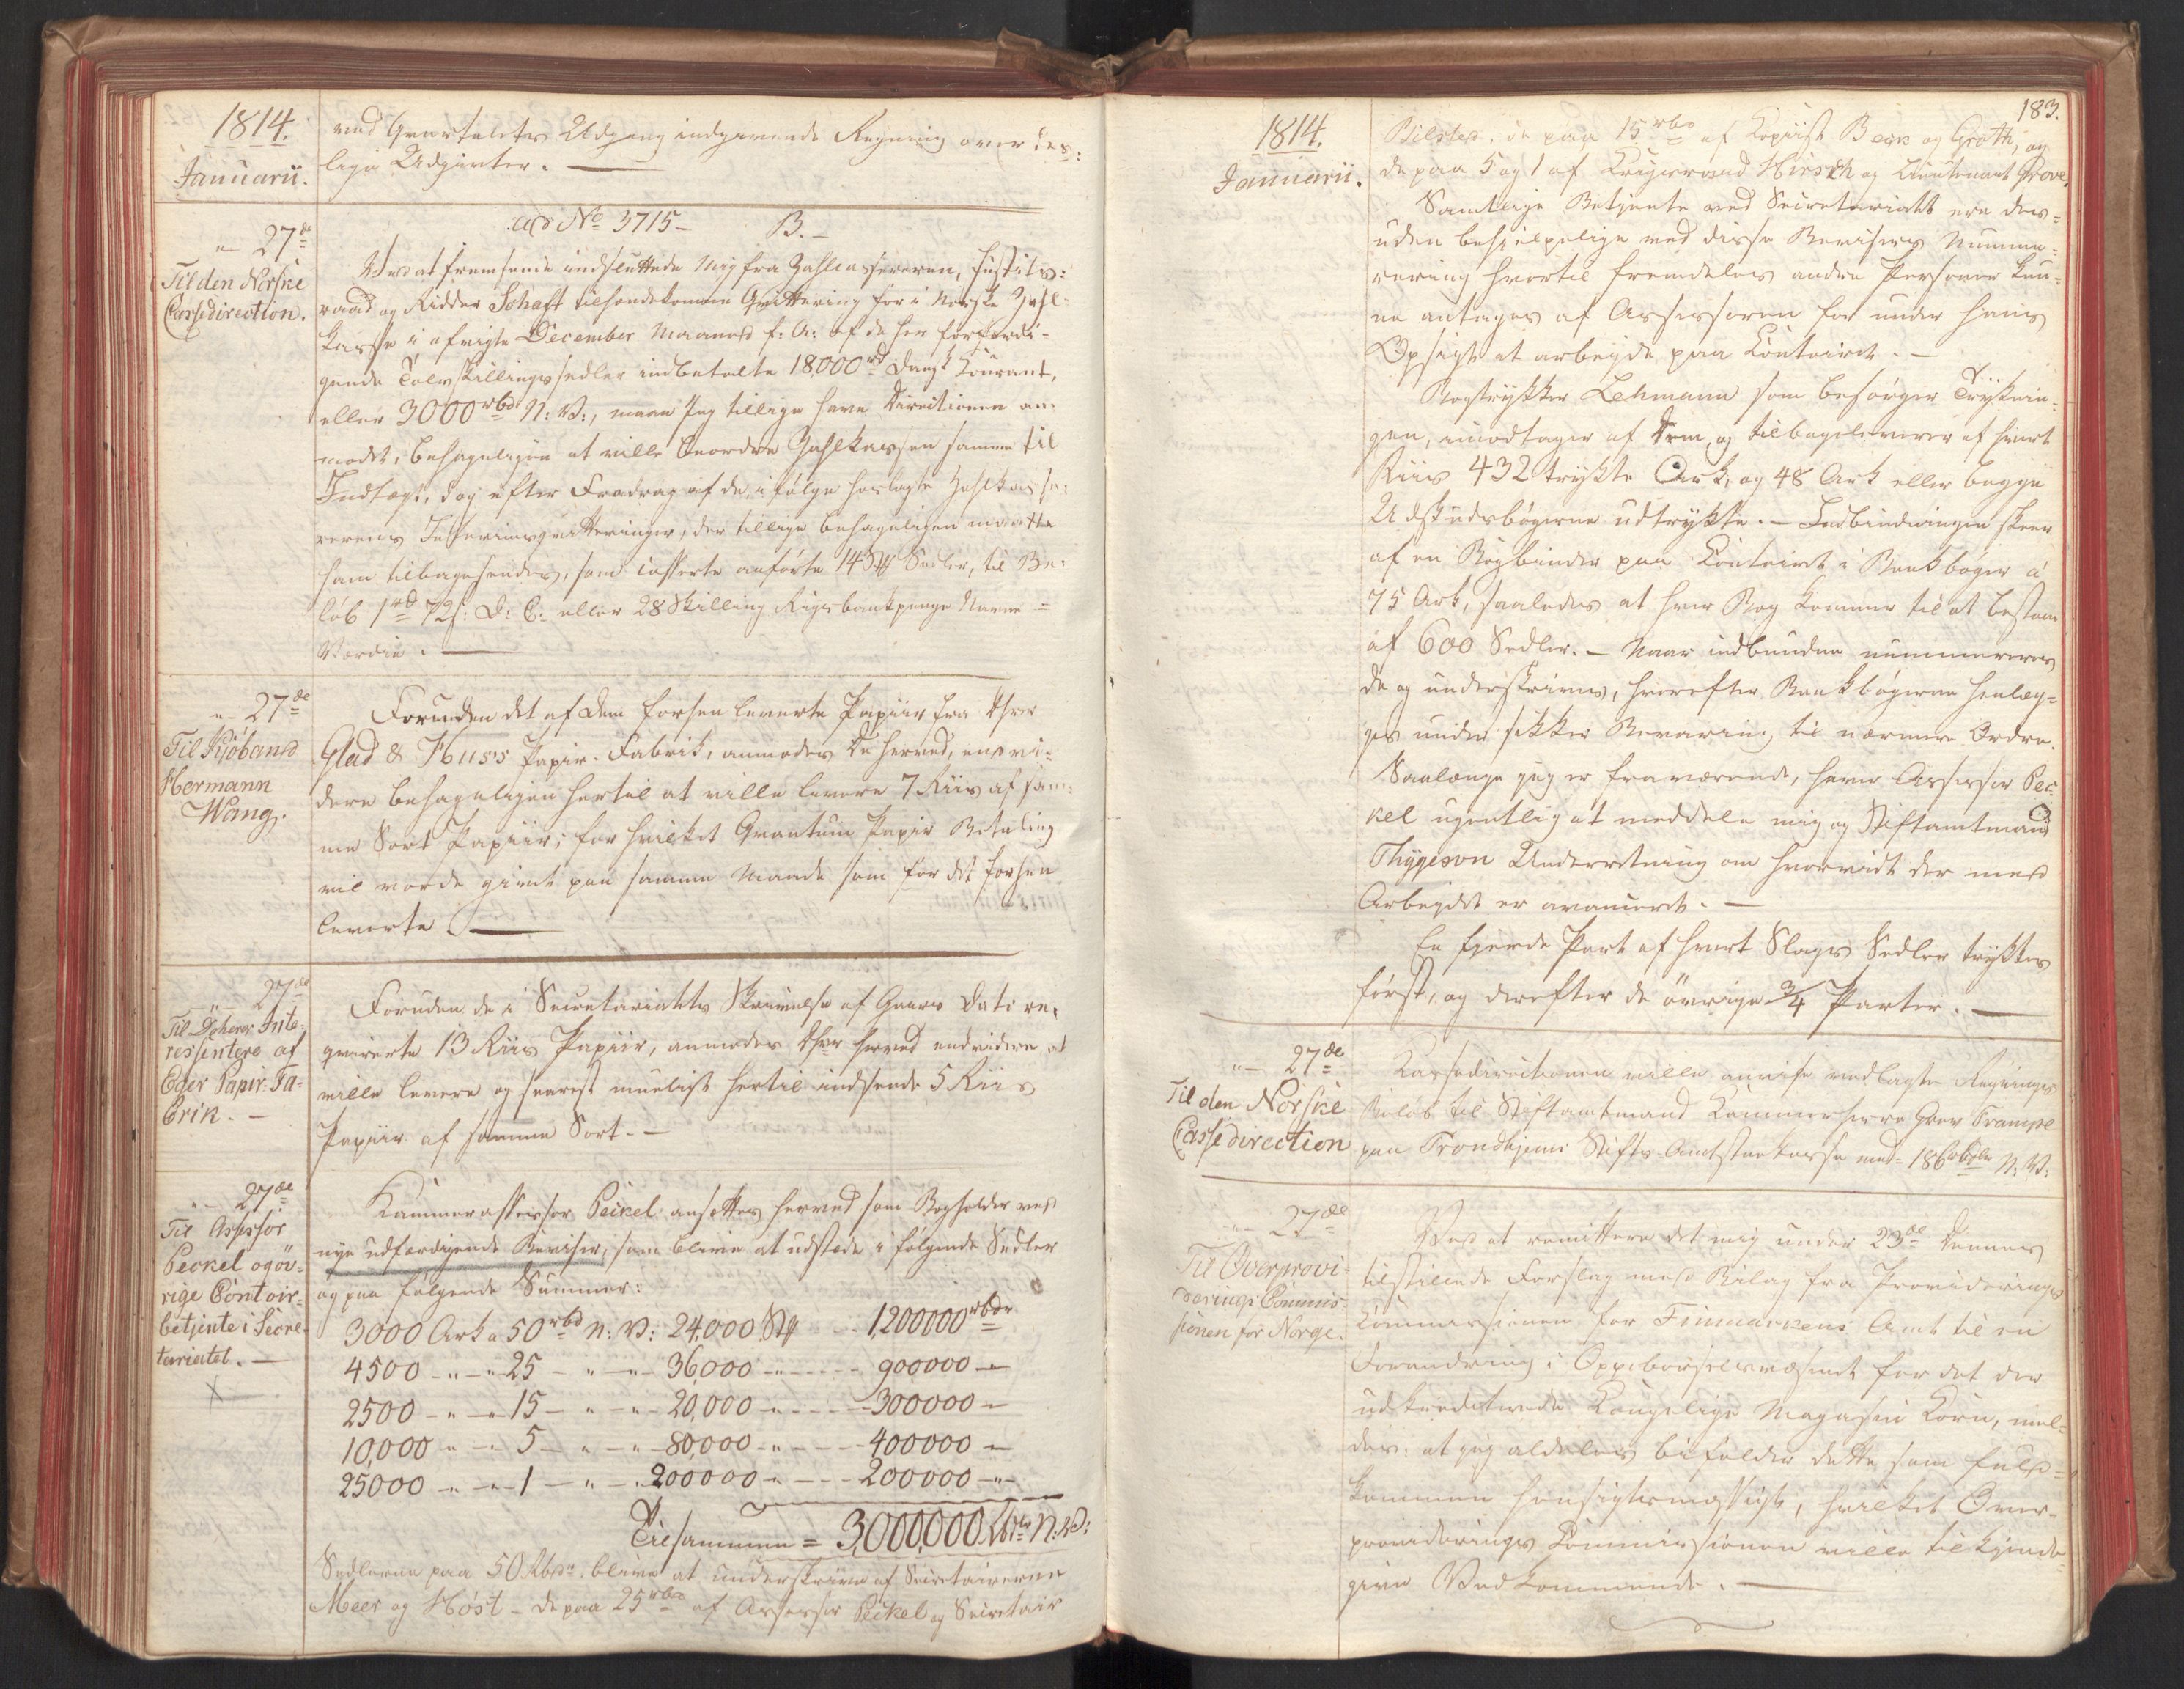 1814.
Januarii.
ved Qvartalets Udgang indgivende Regning over des:
lige Udgivter. —
27de
Til den Norske
Cassedirection.
ad No 3715 - B. -
Ved at fremsende indsluttede mig fra Zahlcassereren, Justits:
raad og Ridder Schaft tilhændekomne Qvittering for i Norske Zahl-
kasse i afvigte December Maaned f: A: af de her forfærdi-
gende Tolvskillingssedler indbetalte 18,000 rd dansk Courant,
eller 3000 rbd N: V:, maae Jeg tillige have Directionen an-
modet, behageligen at ville beordre Zahlkassen samme til
Indtægt, dog efter Fradrag af de, ifølge hoslagte Zahlkasse-
rerens Interimsqvitteringer, der tillige behageligen maatte
ham tilbagesendes, som casserte anførte 14 St Sedler, til Be-
løb 1 rd 72 s: D: C: eller 28 Skilling Rigsbankpenge Navne-
Værdie. —
27de
Til Kjøbmand
Hermann
Wang.
Foruden det af Dem forhen leverte Papiir fra Dhrr
Glad & Huss Papir-Fabrik, anmodes De herved, envi-
dere behageligen hertil at ville levere 7 Riis af sam-
me Sort Papiir; for hvilket Qvantum Papir Betaling
vil vorde givet paa samme Maade som for det forhen
leverte. —
27de
Til Dherrer Inte-
ressentere af
Eger Papir-Fa-
brik. -
Foruden de i Secretariatets Skrivelse af Gaars Dato re-
qvirerte 13 Riis Papiir, anmodes Dhrr herved endvidere at
ville levere og snarest mueligt hertil indsende 5 Riis
Papiir af samme Sort. -
27de
Til Assessor
Peckel og øv-
rige Contoir-
betjente i Secre-
tariatet. -
X
Kammerassessor Peckel ansættes herved som Bogholder ved
nye udfærdigende Beviser, som blive at udstede i følgende Sedler
og paa følgende Summer:
3000 Ark a 50 rbd N: V: 24,000 St 1,200000 rbdr
4500 - " - " 25 - " - " - 36,000 - " - 900000 -
2500 - " - " 15 - " - " - 20,000 - " - 300000 -
10,000 " - " 5 - " - " - 80,000 - " - 400000 -
25000 - " - " 1 - " - " 200,000 - " - 200000 - " -
Tilsammen = 3,000,000 Rbdr N: V:
Sedlerne paa 50 Rbdr blive at underskrive af Secretairerne
Meer og Høst - de paa 25 rbd af Assessor Peckel og Secretair
183.
1814.
Januarii.
Bilsted, de paa 15 rbd af Kopiist Beck og Groth, og
de paa 5 og 1 af Krigsraad Hirsch og Lieutenant Grove.
Samtlige Betjente ved Secretariatet ere des-
uden behielpelige med disse Bevisers Numme-
rering hvortil fremdeles andre Personer kun-
ne antages af Assessoren for under hans
Opsigt at arbeyde paa Contoiret. -
Bogtrykker Lehmann som besørger Tryknin-
gen, imodtager af Dem, og tilbageleverer af hvert
Riis 432 trykte Ark, og 48 Ark eller begge
Udskudsbøgerne utrykte. - Indbindingen skeer
af en Bogbinder paa Contoiret i Bankbøger á
75 Ark, saaledes at hver Bog kommer til at bestaae
af 600 Sedler. - Naar indbundne nummereres
de og underskrives, hvorefter Bankbøgerne henlæg-
ges under sikker Bevaring til nærmere Ordre.
Saalænge jeg er fraværende, haver Assessor Pec-
kel ugentlig at meddele mig og Stiftamtmand
Thygeson Underretning om hvorvidt der med
Arbeydet er avanceret. -
En fjerde Part af hvert Slags Sedler trykkes
først, og derefter de øvrige 3/4 Parter. —
27de
Til den Norske
Cassedirection
Cassedirectionen ville anvise vedlagte Regnings
Beløb til Stiftamtmand Kammerherre Grev Trampe
paa Trondhjems Stifts-Amtstuekasse med 186 rbdlr N: V:
27de
Til Overprovi-
derings Commis-
sionen for Norge.
Ved at remittere det mig under 23de dennes
tilstillede Forslag med Bilag fra Providerings
Commissionen for Finmarkens Amt til en
Forandring i Oppebørselsvæsenet for det der
udkreditterede Kongelige Magasin Korn, mel-
des: at jeg aldeles bifalder dette som fuld-
kommen hensigtsmæssigt, hvilket Over-
providerings Commissionen ville tilkjende-
give Vedkommende. —